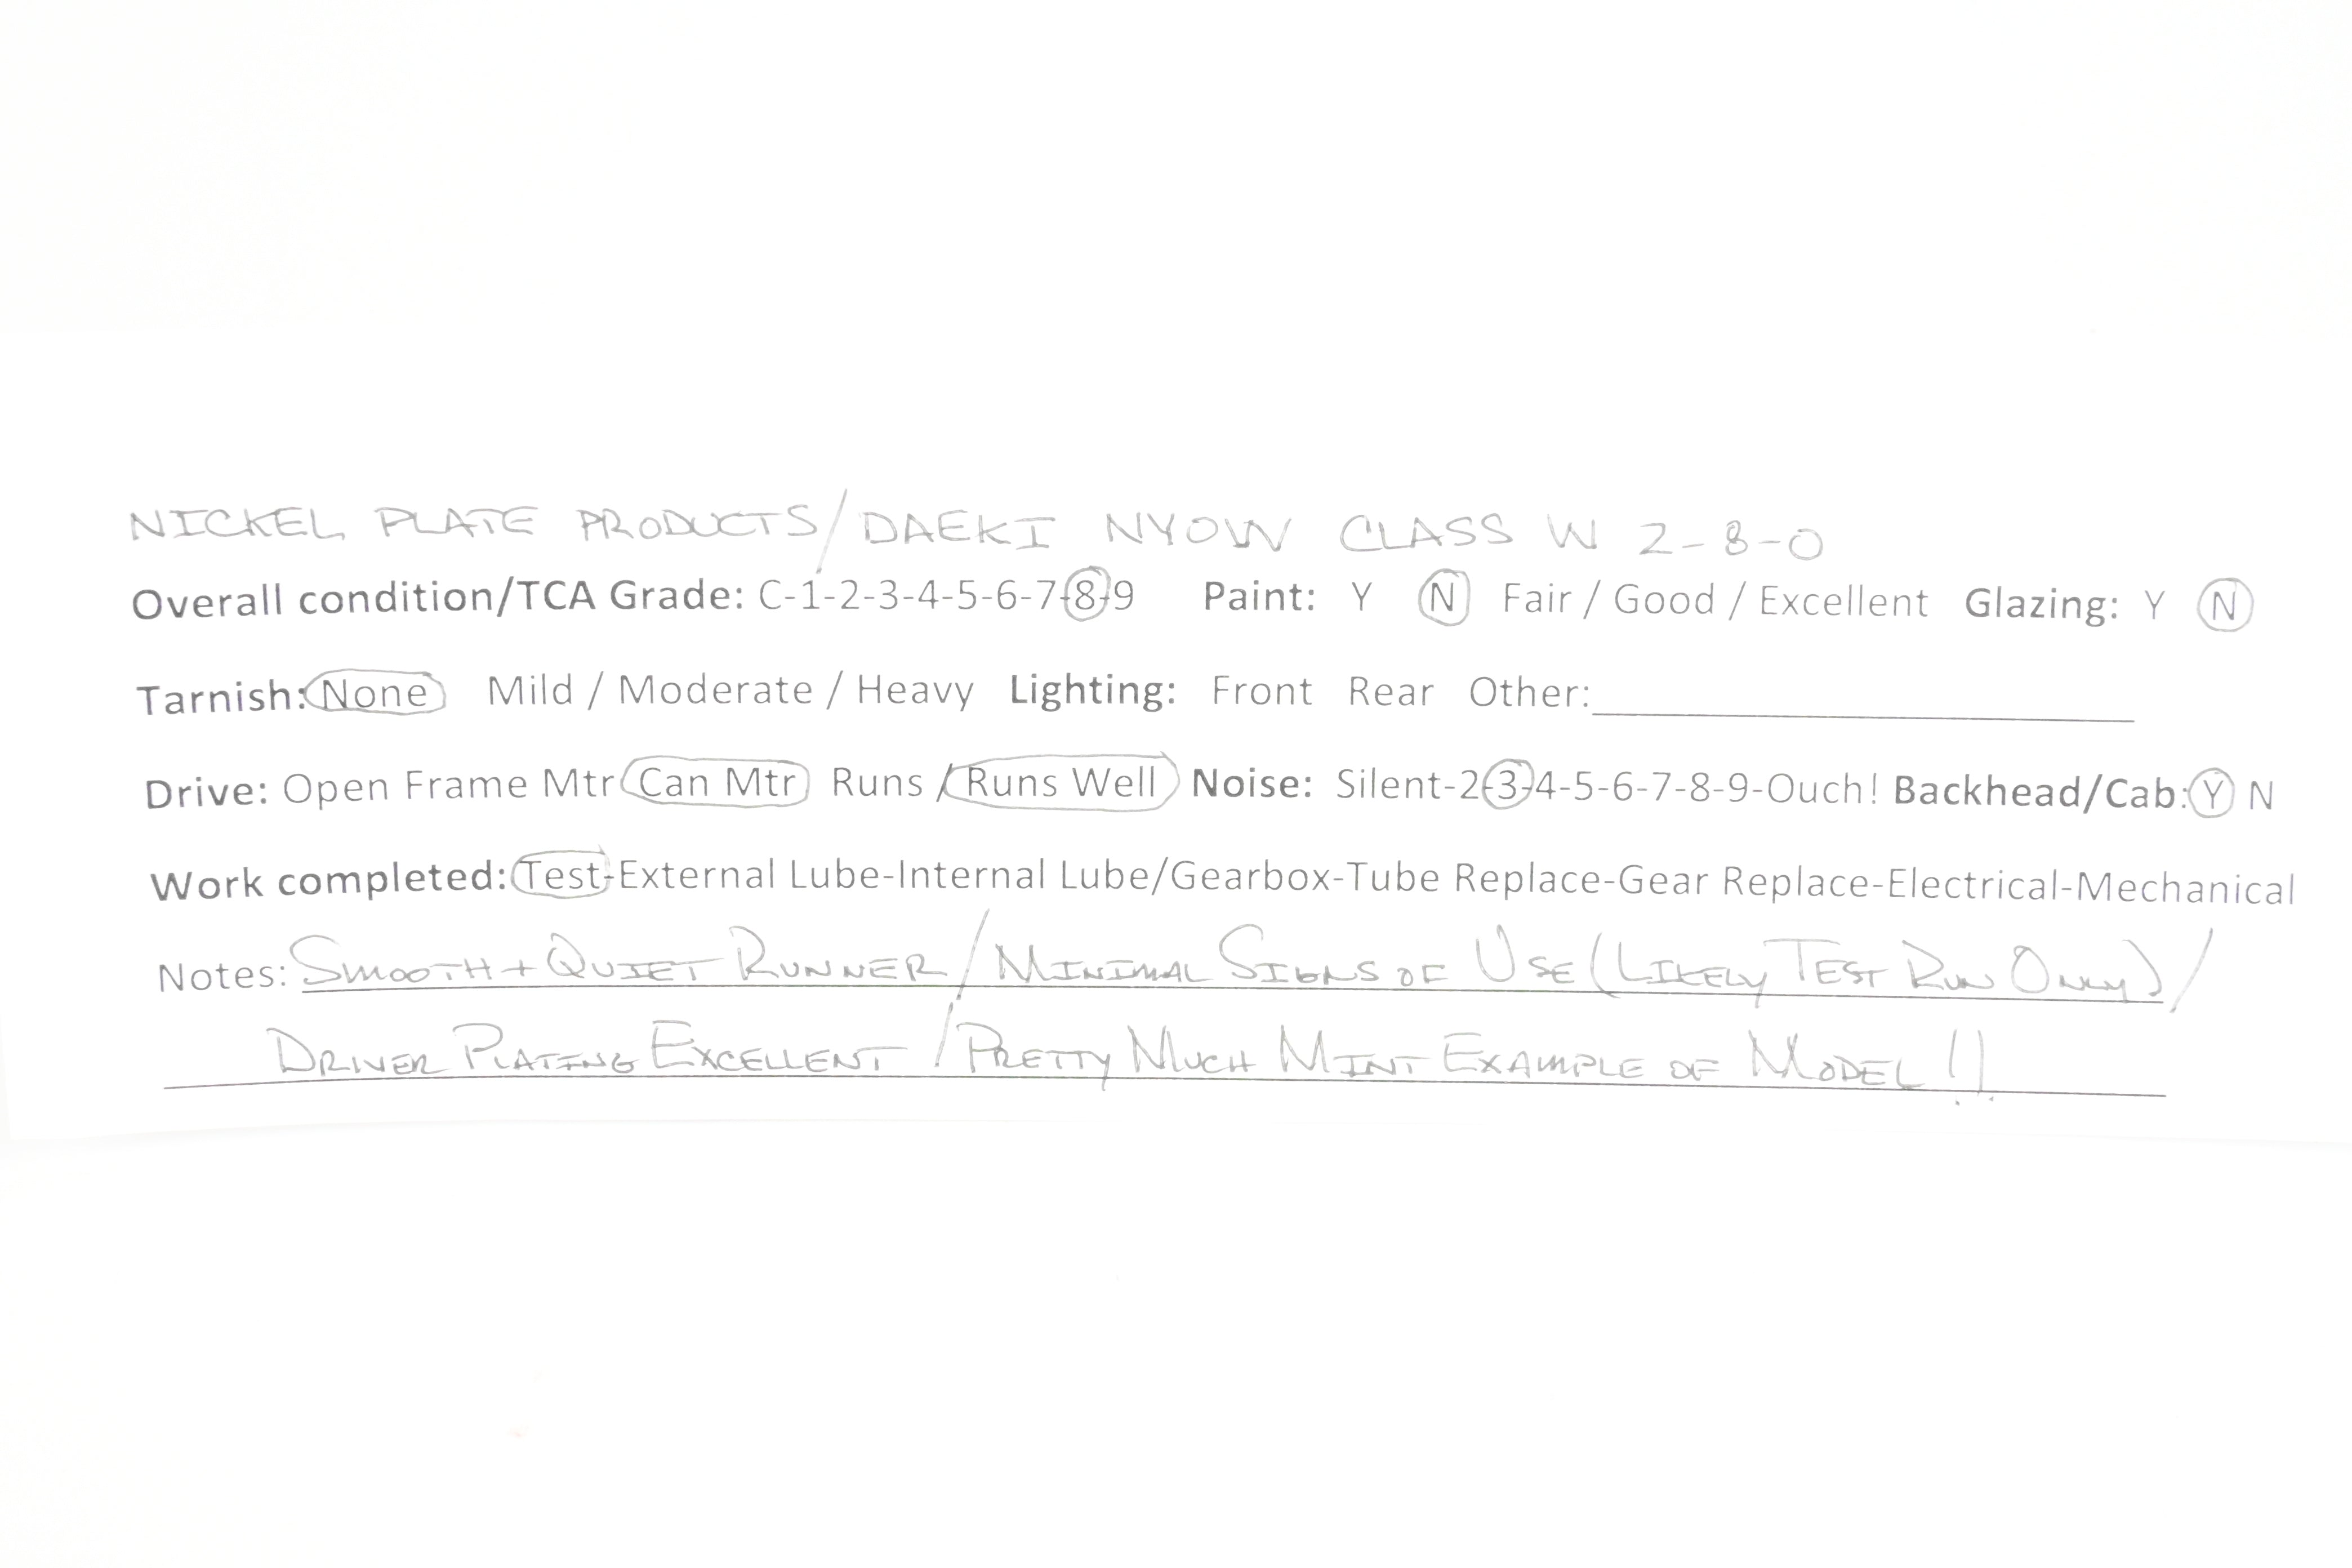 NICKEL PLATE PRODUCTS/DAEKI NYOW CLASS W 2-8-0
Overall condition/TCA Grade: C-1-2-3-4-5-6-7-8-9 Paint: Y N Fair / Good / Excellent Glazing: Y N
Tarnish: None Mild / Moderate / Heavy Lighting: Front Rear Other:
Drive: Open Frame Mtr Can Mtr Runs / Runs Well Noise: Silent-2-3-4-5-6-7-8-9-Ouch! Backhead/Cab: Y N
Work completed: Test-External Lube-Internal Lube/Gearbox-Tube Replace-Gear Replace-Electrical-Mechanical
Notes: SMOOTH + QUIET RUNNER/MINIMAL SIGNS OF USE (LIKELY TEST RUN ONLY)/
DRIVER PLATING EXCELLENT/PRETTY MUCH MINT EXAMPLE OF MODEL!!